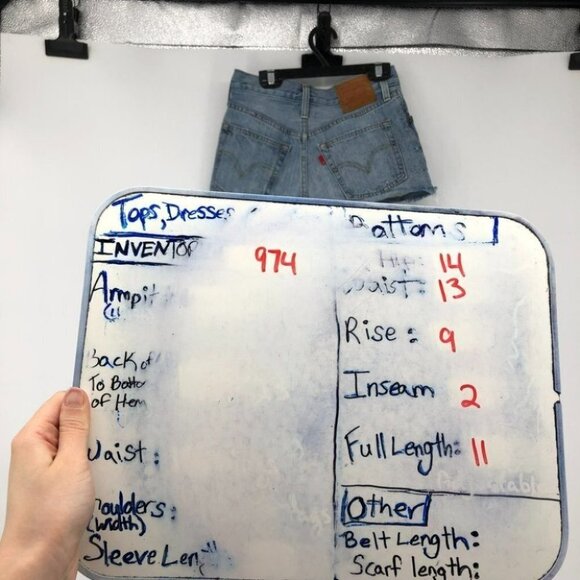 Tops, Dresses
INVENTOR
974
Ampit
Back of
To Botto
of Hem
Waist:
houlders:
(width)
Sleeve Len
Bottoms
Hip: 14
Waist: 13
Rise: 9
Inseam 2
Full Length: 11
Other
Belt Length:
Scarf length: